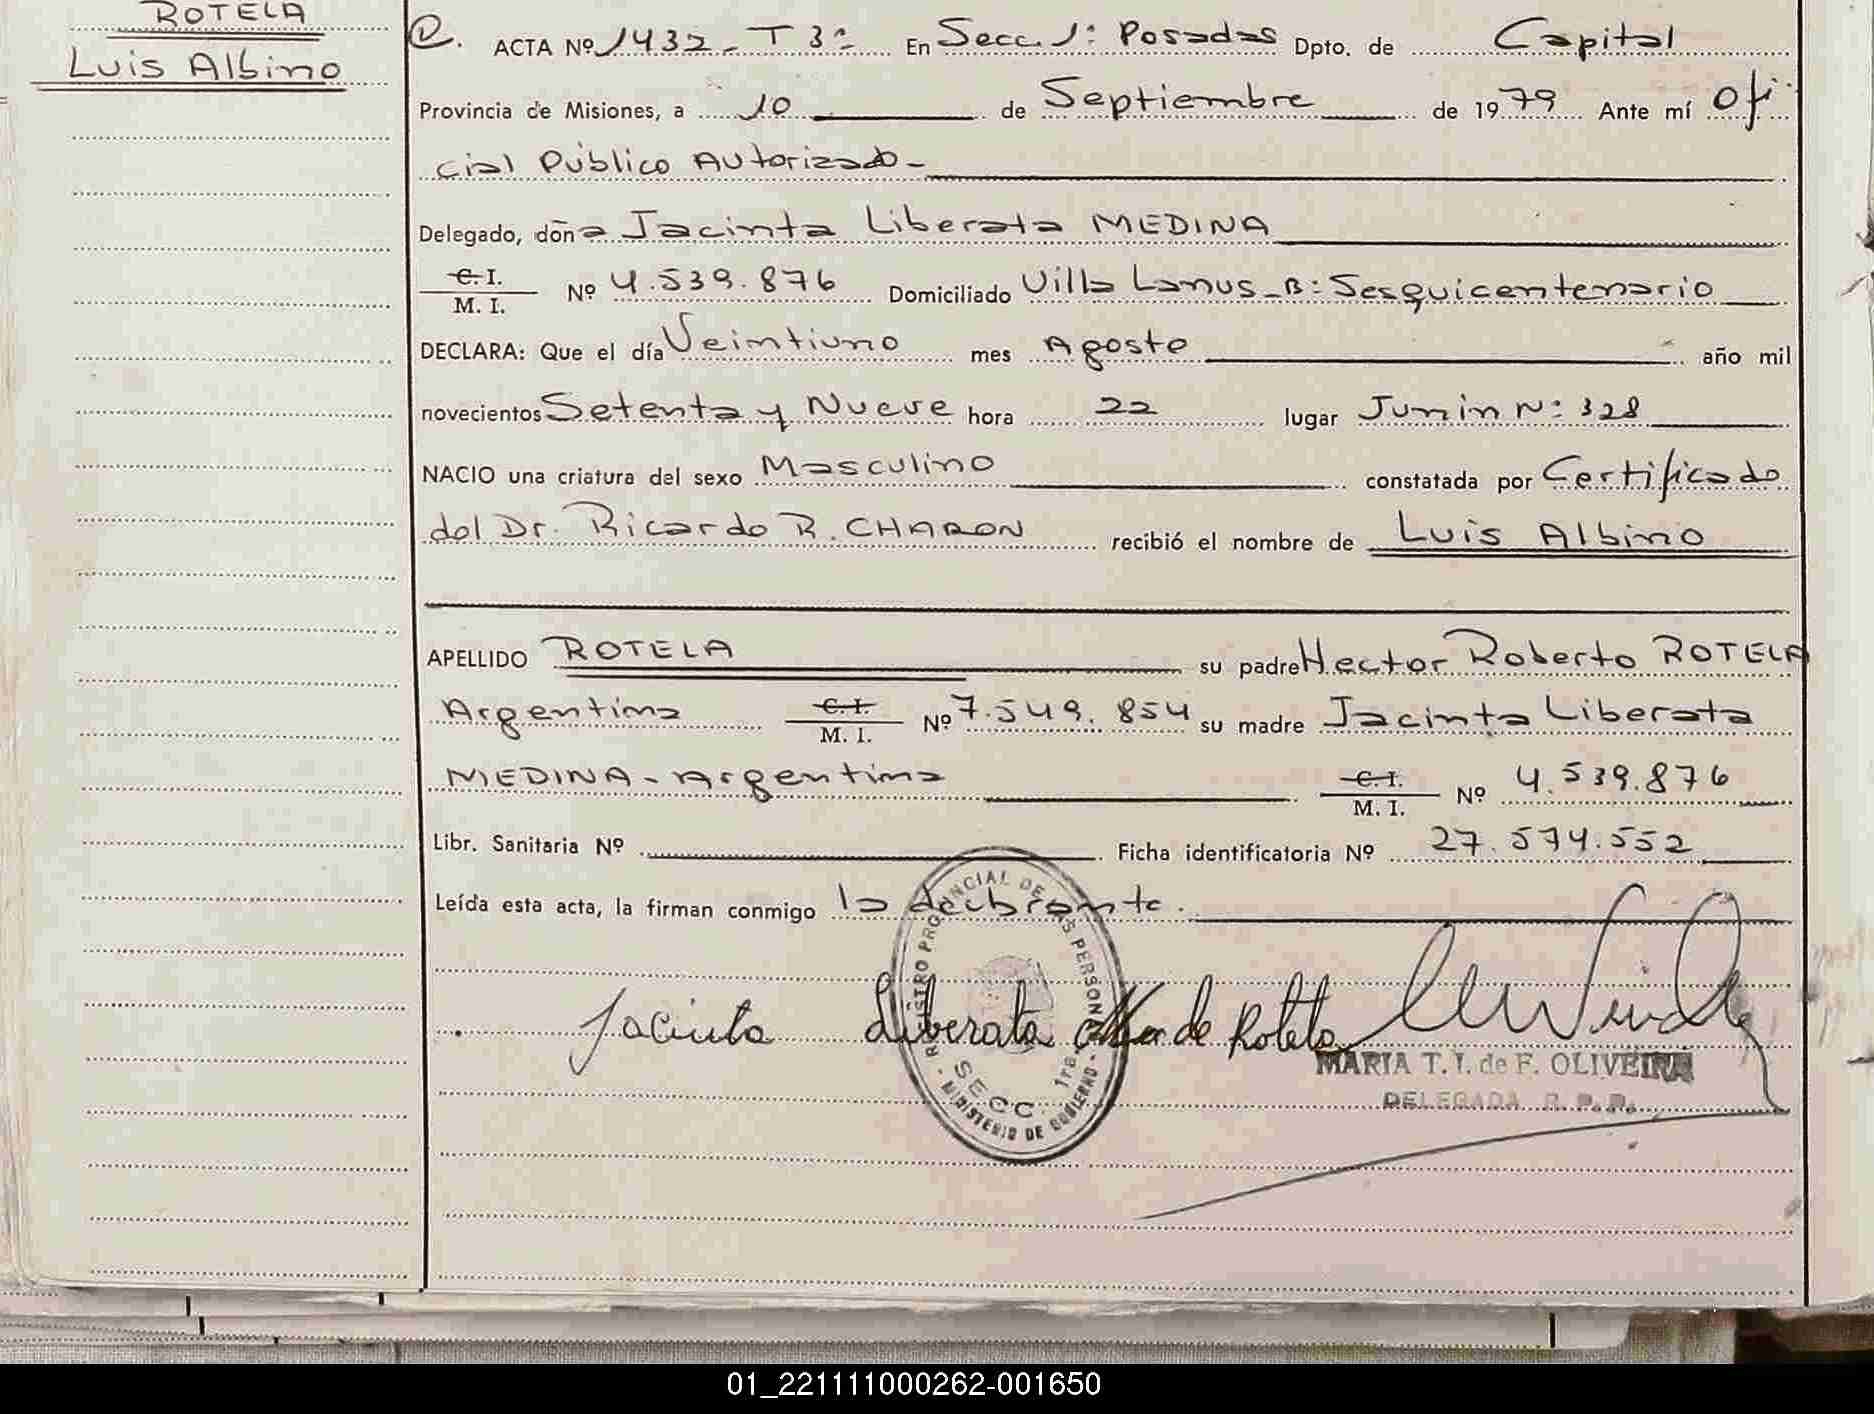 ROTELA
Luis Albino
ACTA Nº 1432 - T 3º En Secc. 1: Posadas Dpto. de Capital
Provincia de Misiones, a 10 de Septiembre de 1979 Ante mí Ofi
cial Público Autorizado -
Delegado, doña Jacinta Liberata MEDINA
C. I.
M. I. Nº 4.539.876 Domiciliado Villa Lanus - B: Sesquicentenario
DECLARA: Que el día Veintiuno mes Agosto año mil
novecientos Setenta y Nueve hora 22 lugar Junin N: 328
NACIO una criatura del sexo Masculino constatada por Certificado
del Dr. Ricardo R. CHARON recibió el nombre de Luis Albino
APELLIDO ROTELA su padre Hector Roberto ROTELA
Argentina C. I. M. I. Nº 7.549.854 su madre Jacinta Liberata
MEDINA - Argentina C. I. M. I. Nº 4.539.876
Libr. Sanitaria Nº Ficha identificatoria Nº 27.574.552
Leída esta acta, la firman conmigo la declarante.
REGISTRO PROVINCIAL DE LAS PERSONAS
SECC. 1ra.
- MINISTERIO DE GOBIERNO -
Jacinta Liberata de Rotela
MARIA T. I. de F. OLIVEIRA
DELEGADA R. P. P.
01_221111000262-001650